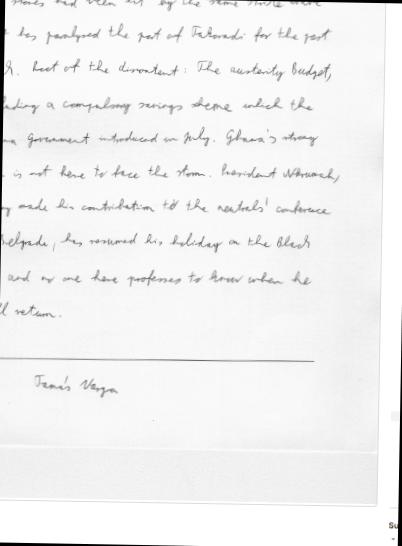 stores had been hit by the same strike
has paralysed the port of Takoradi for the past
Root of the discontent: The austerity Budget,
uding a compulsory savings scheme which the
na Government introduced in July. Ghana's strong
is not here to face the storm. President Nkrumah,
made his contribution to the neutrals' conference
Belgrade, has resumed his holiday on the Black
and no one here professes to know when he
ll return.
Tamás Varga
Su